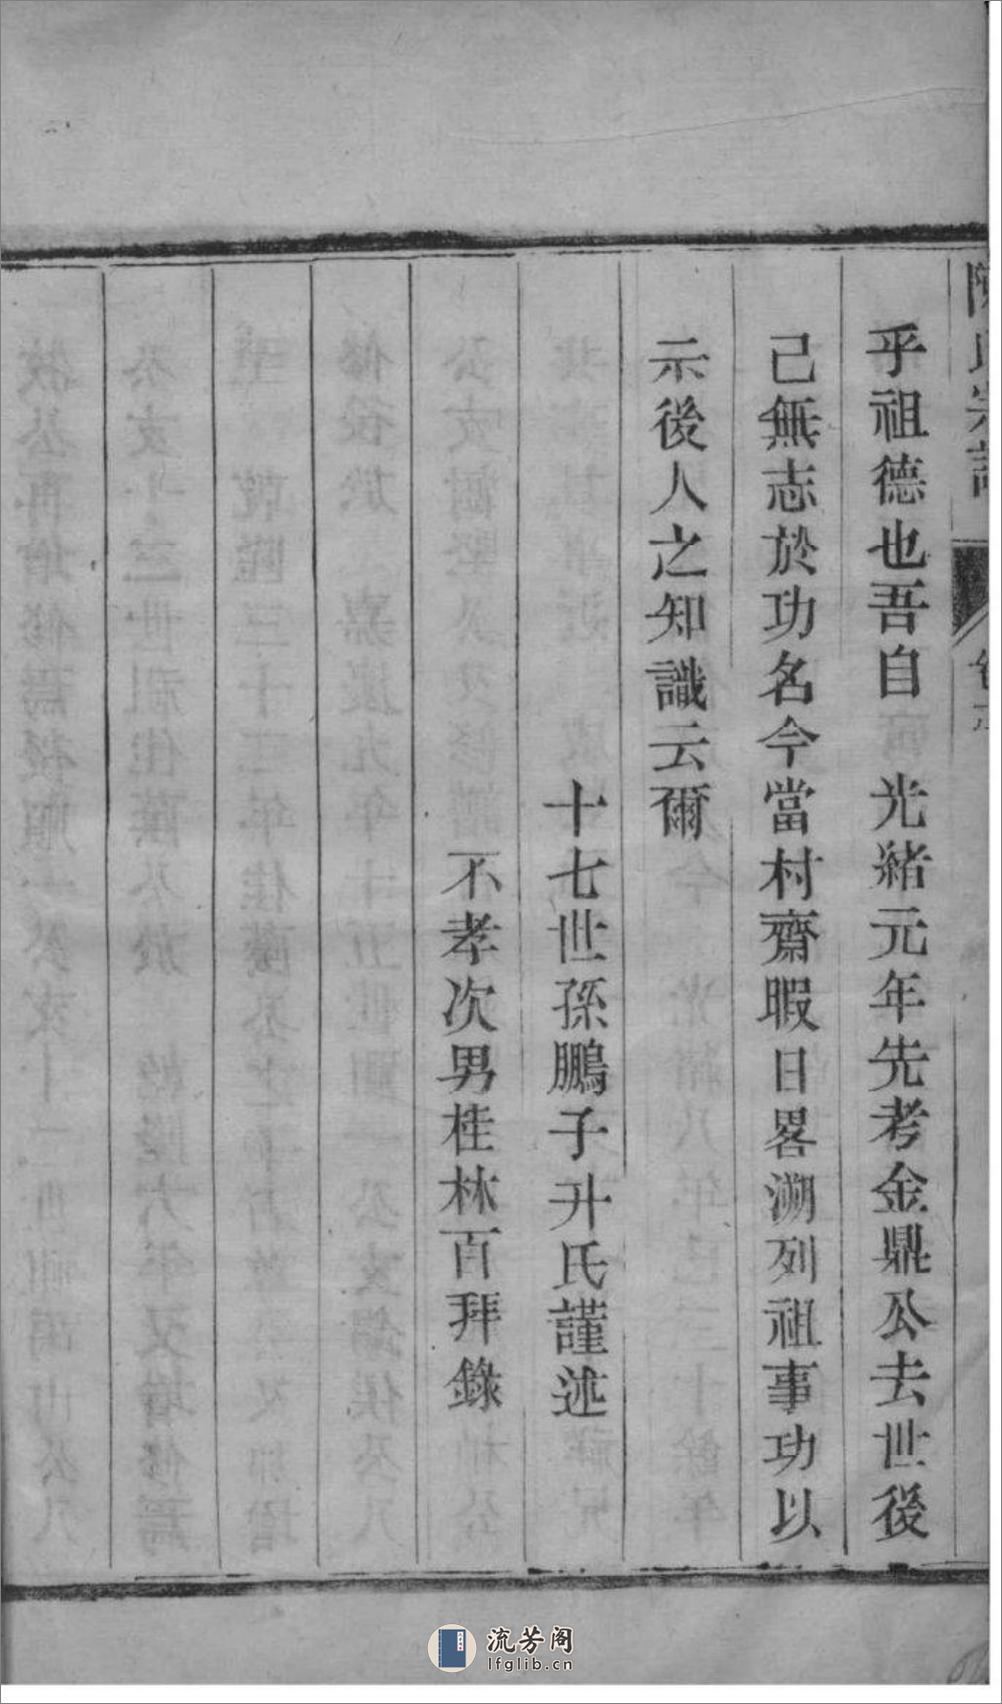 陳氏宗譜
乎祖德也吾自 光緒元年先考金鼎公去世後
己無志於功名今當村齋暇日畧溯列祖事功以
示後人之知識云爾
十七世孫鵬子升氏謹述
不孝次男桂林百拜錄
流芳阁
lfglib.cn